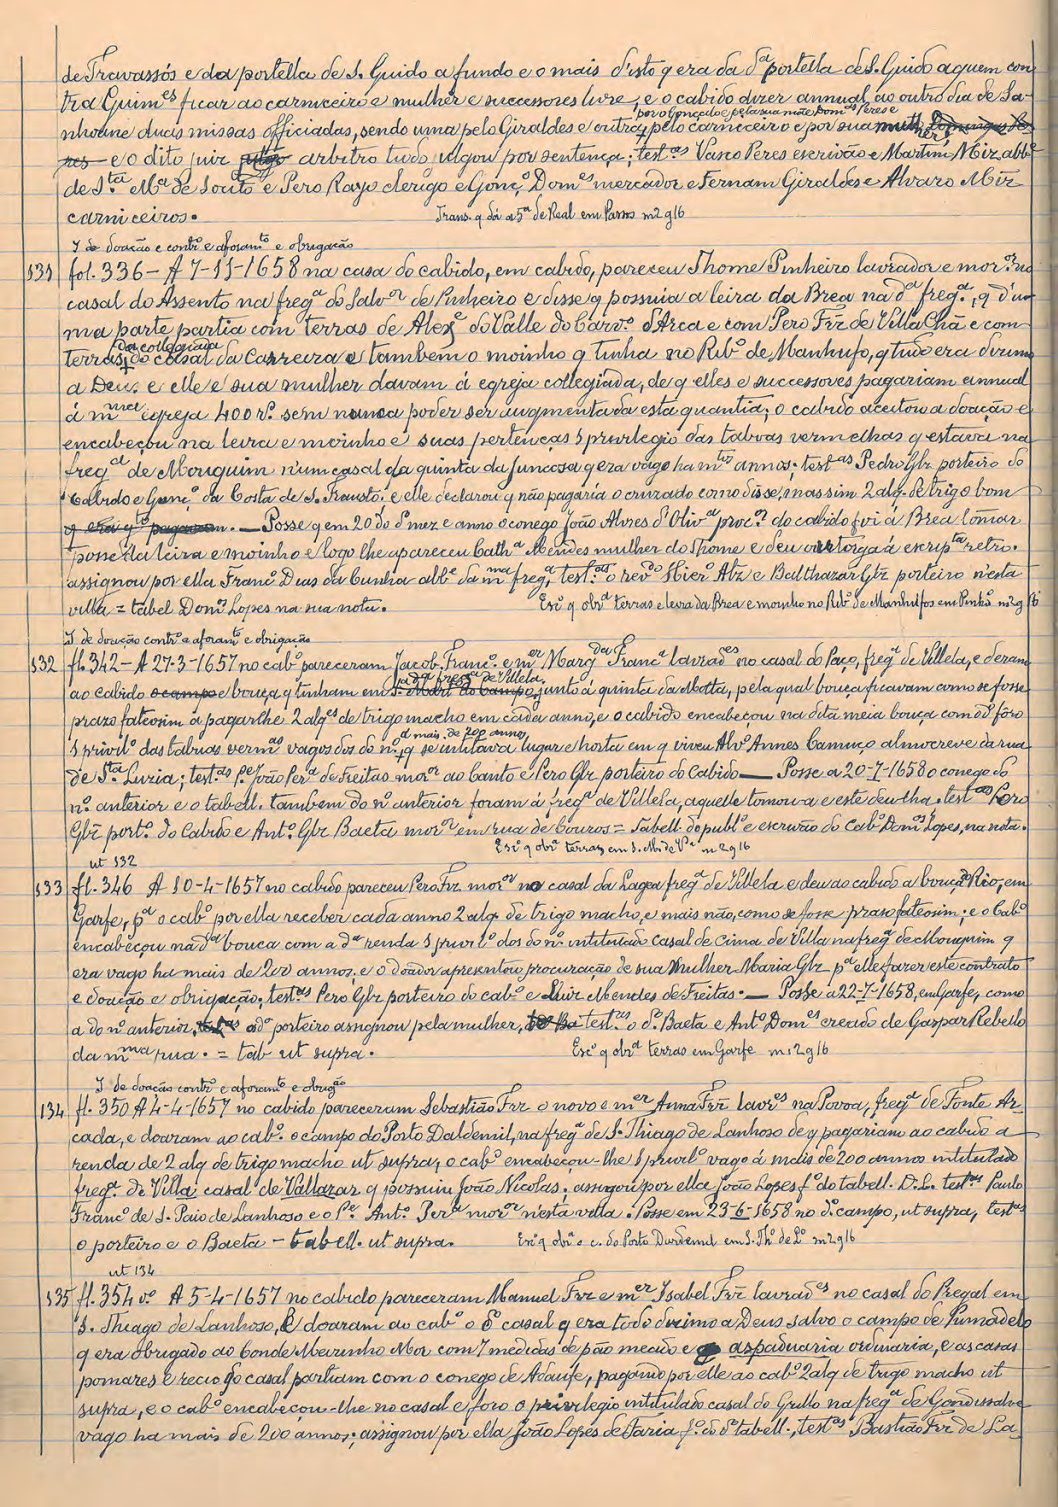 de Travassós e da portella de S. Guido a fundo e o mais d'isto q era da dª portella de S. Guido aquem con-
tra Guim.es ficar ao carniceiro e mulher e successores livre, e o cabido dizer annual, ao outro dia de Sa-
por o Gonçalo e pela sua mãe Dom.as Peres e
nhoane duas missas officiadas, sendo uma pelo Giraldes e outra pelo carniceiro e por sua mulher Domingas Pe-
res e o dito juiz arbitro tudo julgou por sentença; test.as Vasco Peres escrivão e Martim Miz abb.e
de S.ta M.a de Souto e Pero Rayo clerigo e Gonç.o Dom.es mercador e Fernam Giraldes e Alvaro Miz
carniceiros. Trans. q dá a 5ª de Real em Passos m2g16
I de doação e contr.o e aforam.to e obrigação
131 fol. 336 – A 7-11-1658 na casa do cabido, em cabido, pareceu Thome Pinheiro lavrador e mor.or no
casal do Assento na freg.a do Salv.or de Pinheiro e disse q possuia a leira da Brea na d.a freg.a, q d'u-
ma parte partia com terras de Alex.e do Valle do Carv.o d'Arca e com Pero Frz de Villa Chã e com
da collegiada
terras do casal da Carreira e tambem o moinho q tinha no Rib.o de Manhufo, q tudo era dizimo
a Deus e elle e sua mulher davam á egreja collegiada, de q elles e successores pagariam annual
á m.ma egreja 400 r.s sem nunca poder ser augmentada esta quantia; o cabido aceitou a doação e
encabeçou na leira e moinho e suas pertenças 1 privilegio das tabuas vermelhas q estava na
freg.a de Mouquim n'um casal da quinta da Juncosa q era vago ha m.tos annos; test.as Pedro Glz porteiro do
cabido e Gonç.o da Costa de S. Fausto. e elle declarou q não pagaria o cruzado como disse, mas sim 2 alq. de trigo bom
q era q.to pagavam. — Posse q em 20 do d.o mez e anno o conego João Alvres d'Oliv.a proc.or do cabido foi á Brea tomar
posse da leira e moinho e logo lhe apareceu Cath.a Mendes mulher do Thome e deu outorga á escrip.ta retro.
assignou por ella Franc.o Dias da Cunha abb.e da m.ma freg.a, test.as o rev.do Hier.o Alz e Balthazar Glz porteiro n'esta
villa = tabel Dom.os Lopes na sua nota. Esc.a q obr.a terras e leira da Brea e moinho no Rib.o de Manhufos em Pinh.o m2g16
I de doação contr.o e aforam.to e obrigação
132 fl. 342 – A 27-3-1657 no cab.o pareceram Jacob. Franc.o e m.er Marg.da Franc.a lavrad.es no casal do Paço, freg.a de Villela, e deram
na d.a freg.a de Villela
ao cabido o campo e bouça q tinham em S. Mart do Campo, junto á quinta da Motta, pela qual bouça ficavam como se fosse
prazo fateosim a pagar-lhe 2 alq.es de trigo macho em cada anno, e o cabido encabeçou na dita meia bouça com o d.o fôro
á mais de 200 annos,
1 privil.o das tabuas verm.as vagos dos do n.o, q se intitava lugar e horta em q viveu Alv.o Annes Camiço almocreve da rua
de S.ta Luzia; test.as P.e João Per.a de Freitas mor.or ao Canto e Pero Glz porteiro do Cabido — Posse a 20-7-1658 o conego do
n.o anterior e o tabell. tambem do n.o anterior foram á freg.a de Villela, aquelle tomou-a e este deu lha. test.as Pero
Glz port.o do Cabido e Ant.o Glz Baeta mor.or em rua de Couros = Tabell. do publ.o e escrivão do Cab.o Dom.os Lopes, na nota.
Esc.a q obr.a terras em S. M. de V.a m2g16
ut 132
133 fl. 346 A 10-4-1657 no cabido pareceu Pero Frz mor.or no casal da Lagea freg.a de Villela e deu ao cabido a bouça do Rio, em
Garfe, p.a o cab.o por ella receber cada anno 2 alq. de trigo macho, e mais não, como se fosse praso fateosim; e o Cab.o
encabeçou na d.a bouca com a d.a renda 1 privil.o dos do n.o intitulado casal de Cima de Villa na freg.a de Mouquim q
era vago ha mais de 200 annos; e o doador apresentou procuração de sua mulher Maria Glz p.a elle fazer este contrato
e doação e obrigação; test.as Pero Glz porteiro do cab.o e Luiz Mendes de Freitas. — Posse a 22-7-1658, em Garfe, como
a do n.o anterior, o d.o porteiro assignou pela mulher, test.as o d.o Baeta e Ant.o Dom.es creado de Gaspar Rebello
da m.ma rua. = tab ut supra. Esc.a q obr.a terras em Garfe m2g16
I de doação contr.o e aforam.to e obrig.ão
134 fl. 350 A 4-4-1657 no cabido pareceram Sebastião Frz o novo e m.er Anna Frz lavr.es na Povoa, freg.a de Fonte Ar-
cada, e doaram ao cab.o o campo do Porto Daldemil, na freg.a de S. Thiago de Lanhoso de q pagariam ao cabido a
renda de 2 alq de trigo macho ut supra; o cab.o encabeçou-lhe 1 privil.o vago á mais de 200 annos intitulado
freg.a de Villa casal de Vallazar q possuiu João Nicolas; assignou por ella João Lopes f.o do tabell. D. L. test.as Paulo
Franc.o de S. Paio de Lanhoso e o P.e Ant.o Per.a mor.or n'esta villa. Posse em 23-6-1658 no d.o campo, ut supra, test.as
o porteiro e o Baeta – tabell. ut supra. Esc.a q obr.a o c. do Porto Durdemil em S. Th.o de L.o m2g16
ut 134
135 fl. 354 v.o A 5-4-1657 no cabido pareceram Manuel Frz e m.er Isabel Frz lavrad.es no casal do Regal em
S. Thiago de Lanhoso, E doaram ao cab.o o d.o casal q era todo dizimo a Deus salvo o campo de Pumadelo
q era obrigado ao Conde Meirinho Mor com 7 medidas de pão meado e aspaduaria ordinaria, e as casas
pomares e recio do casal partiam com o conego de Adaufe, pagando por elle ao cab.o 2 alq de trigo macho ut
supra, e o cab.o encabeçou-lhe no casal e foro o privilegio intitulado casal do Grillo na freg.a de Gondussalve
vago ha mais de 200 annos; assignou por ella João Lopes de Faria f.o do d.o tabell., test.as Bastião Frz de La-